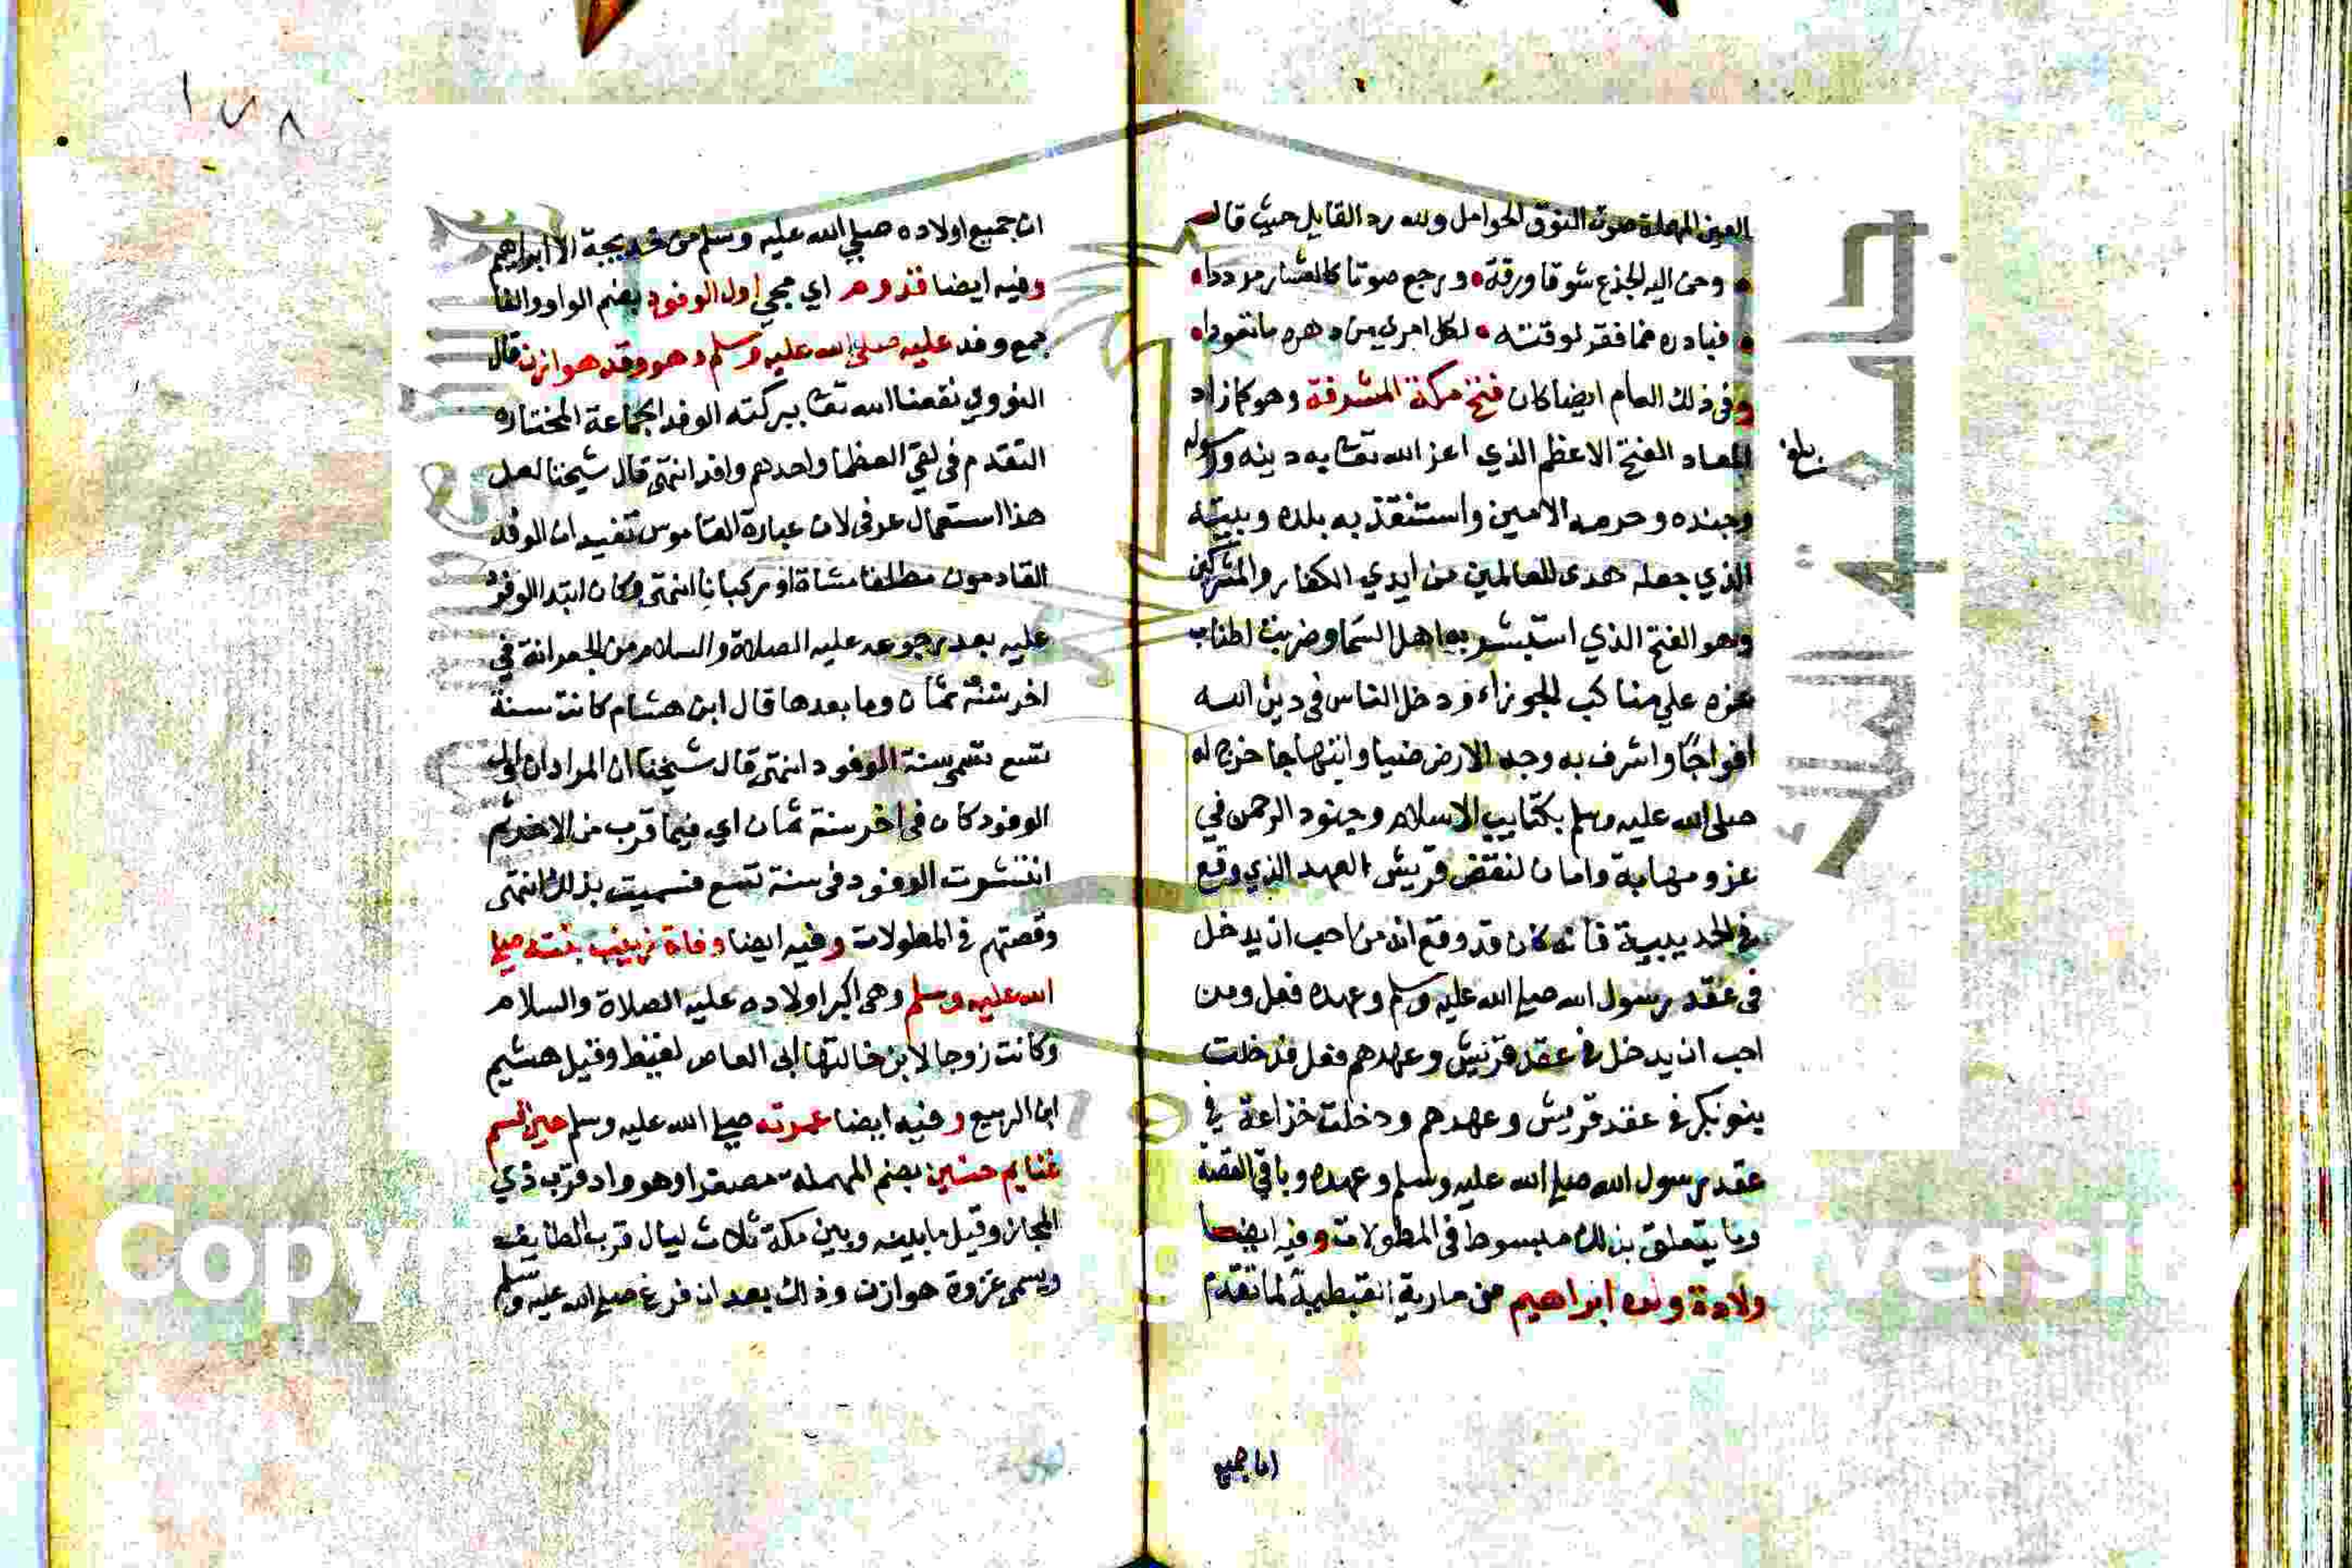 العين المهملة صوت النوق الحوامل ولله رد القايل حيث قال
وحن اليه الجذع شوقا ورقة ورجع صوتا كالعشار مرددا
فبادره ضما فقر لوقته لكل امرئ من دهره ما تعودا
وفي ذلك العام ايضا كان فتح مكة المشرفة وهو كما زاد
المعاد الفتح الاعظم الذي اعز الله تعا به دينه ورسوله
وجنده وحرمه الامين واستنقذ به بلده وبيته
الذي جعله هدى للعالمين من ايدي الكفار والمشركين
وهو الفتح الذي استبشر به اهل السما وضربت اطناب
عزه علي مناكب الجوزاء ودخل الناس في دين الله
افواجا واشرف به وجه الارض ضيا وابتهاجا خرج له
صلى الله عليه وسلم بكتايب الاسلام وجنود الرحمن في
عز ومهابة وامان لنقض قريش العهد الذي وقع
في الحديبية فانه كان قد وقع انه من احب ان يدخل
في عقد رسول الله صلي الله عليه وسلم وعهده فعل ومن
احب ان يدخل في عقد قريش وعهدهم فعل فدخلت
بنو بكر في عقد قريش وعهدهم ودخلت خزاعة في
عقد رسول الله صلي الله عليه وسلم وعهده وباقي القصة
وما يتعلق بذلك مبسوط في المطولات وفيه ايضا
ولادة ولده ابراهيم من مارية القبطية لما تقدم
بلغ
اما جميع
١٧٨
ان جميع اولاده صلي الله عليه وسلم من خديجة الا ابراهيم
وفيه ايضا قدوم اي مجي اول الوفود بضم الواو والفا
جمع وفد عليه صلى الله عليه وسلم وهو وفد هوازن قال
النووي نفعنا الله تعا ببركته الوفد الجماعة المختاره
التقدم في لقي العظما واحدهم وافد انتهى قال شيخنا لعل
هذا استعمال عرفى لان عبارة القاموس تفيد ان الوفد
القادمون مطلقا مشاة او ركبانا انتهى وكان ابتدا الوفود
عليه بعد رجوعه عليه الصلاة والسلام من الجعرانة في
اخر سنة ثمان وما بعدها قال ابن هشام كانت سنة
تسع تسمى سنة الوفود انتهى قال شيخنا ان المراد ان اول
الوفود كان في اخر سنة ثمان اي فيما قرب من الاخر ثم
انتشرت الوفود في سنة تسع فسميت بذلك انتهى
وقصتهم في المطولات وفيه ايضا وفاة زينب بنته صلي
الله عليه وسلم وهى اكبر اولاده عليه الصلاة والسلام
وكانت زوجا لابن خالتها ابى العاص لقيط وقيل هشيم
ابن الربيع وفيه ايضا عمرته صلي الله عليه وسلم حين قسم
غنايم حنين بضم المهملة مصغرا وهو واد قرب ذي
المجاز وقيل ما بينه وبين مكة ثلاث ليال قرب الطايف
ويسمى غزوة هوازن وذلك بعد ان فرغ صلي الله عليه وسلم